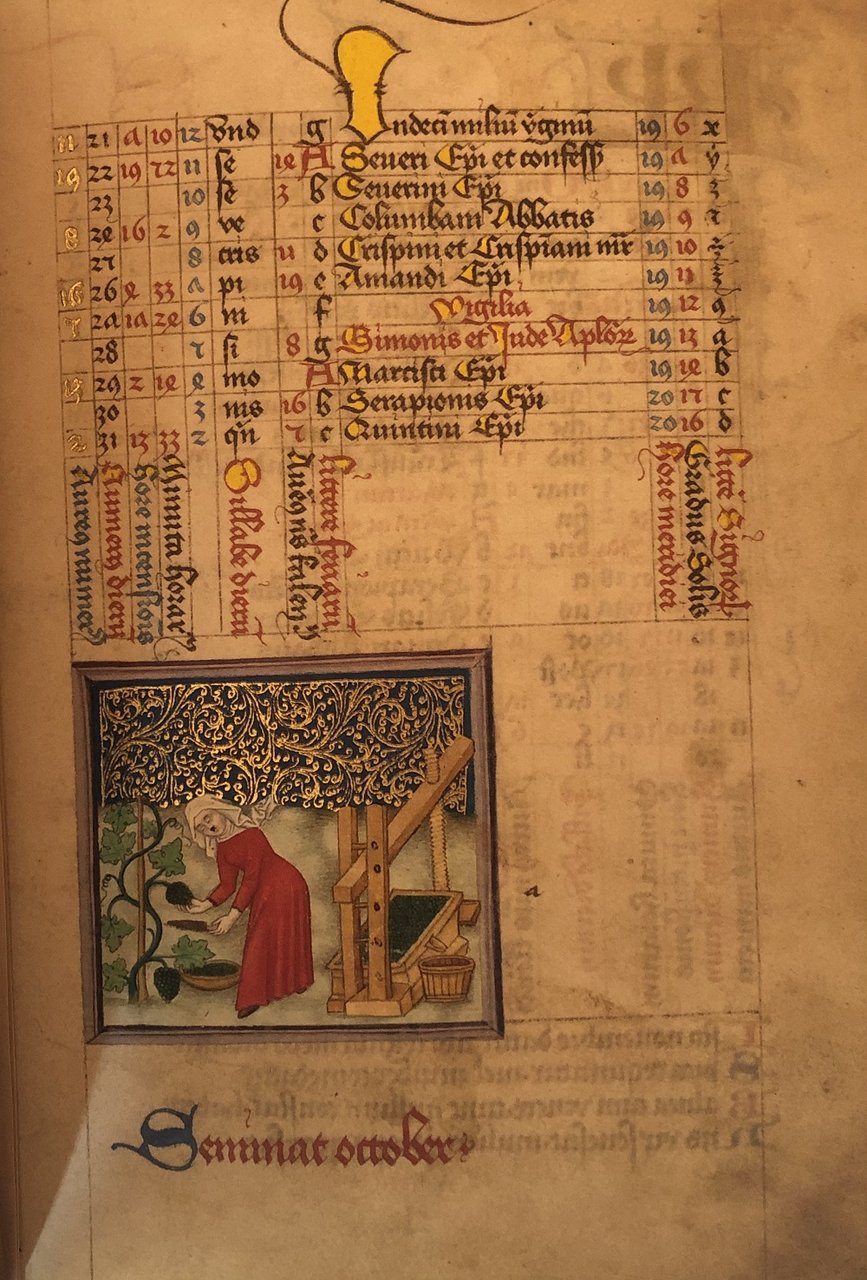 11 21 7 10 12 vnd g Indeci miliū v̄ginū 19 6 x
19 22 19 52 11 se 14 A Seueri Ep̄i et confess 19 7 y
23 10 se 3 b Seuerini Ep̄i 19 8 z
8 24 16 2 9 ve c Columbani Abbatis 19 9
25 8 cris 11 d Crispini et Crispiani mr̄ 19 10
16 26 4 33 7 pi 19 e Amandi Ep̄i 19 11
5 27 17 24 6 ni f Vigilia 19 12 9
28 5 si 8 g Simonis et Jude Aplōꝝ 19 13 a
13 29 2 14 4 mo A Narcisci Ep̄i 19 14 b
30 3 nis 16 b Serapionis Ep̄i 20 15 c
2 31 13 33 2 qn̄ 5 c Quintini Ep̄i 20 16 d
Aureꝰ numerꝰ
Numerꝰ dierū
Hore incensiōis
Minuta horaꝝ
Sillabe dierū
Aureꝰ nꝰ kalen
Littere feriarū
Hore meridiei
Gradus Solis
Litte Signoꝝ
Seminat october